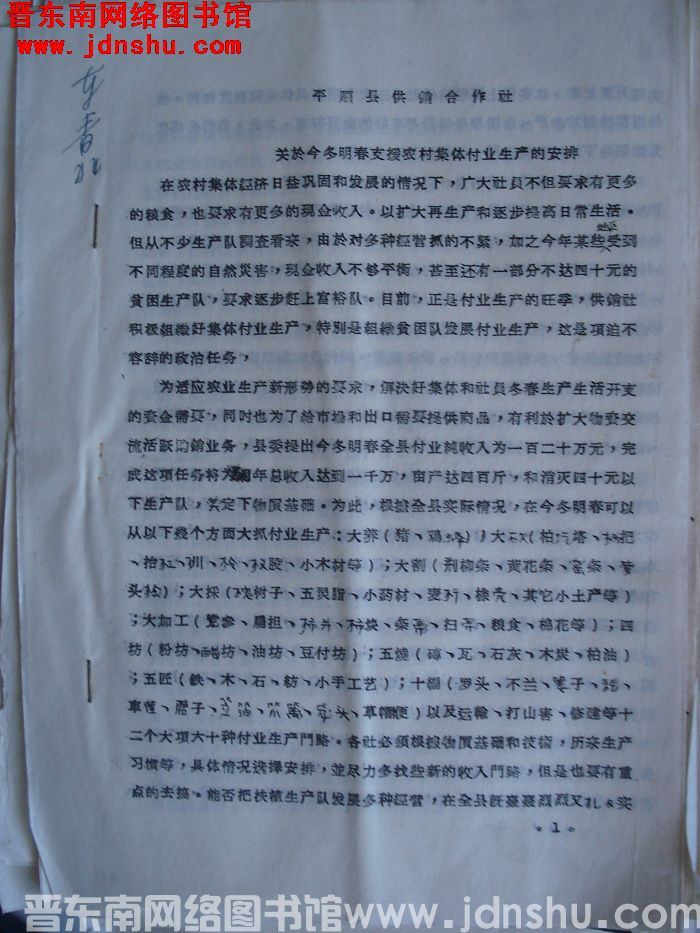 晋东南网络图书馆
www.jdnshu.com
平顺县供销合作社
关於今冬明春支援农村集体付业生产的安排
在农村集体经济日益巩固和发展的情况下，广大社员不但要求有更多
的粮食，也要求有更多的现金收入。以扩大再生产和逐步提高日常生活。
但从不少生产队调查看来，由於对多种经营抓的不紧，加之今年某些受到
不同程度的自然災害，现金收入不够平衡，甚至还有一部分不达四十元的
貧困生产队，要求逐步赶上富裕队。目前，正是付业生产的旺季，供銷社
积极組織好集体付业生产，特别是組織貧困队发展付业生产，这是项迫不
容辞的政治任务，
为适应农业生产新形势的要求，解决好集体和社员冬春生产生活开支
的资金需要，同时也为了给市場和出口需要提供商品，有利於扩大物资交
流活跃购銷业务，县委提出今冬明春全县付业純收入为一百二十万元，完
成这項任务将为明年总收入达到一千万，亩产达四百斤，和消灭四十元以
下生产队，奠定下物质基础。为此，根据全县实际情况，在今冬明春可以
从以下几个方面大抓付业生产：大养（猪、鸡）；大（柏
、小木材等）；大割（荆柳条、黄花条、条、
头）；大採（树子、五灵脂、小药材、其它小土产等）
；大加工（党参、扁担、条、扫、粮食、棉花等）；四
坊（粉坊、醋坊、油坊、豆付坊）；五燒（磚、瓦、石灰、木炭、柏油）
；五匠（鉄、木、石、紡、小手工艺）；十編（罗头、不兰、
草帽便）以及运输、打山害、修建等十
二个大项六十种付业生产門路。各社必須根据物质基础和技術，历来生产
习惯等，具体情况选择安排，並尽力多找些新的收入門路，但是也要有重
点的去搞。能否把扶植生产队发展多种經营，在全县既轰轰烈烈又扎实
·1·
晋东南网络图书馆 www.jdnshu.com